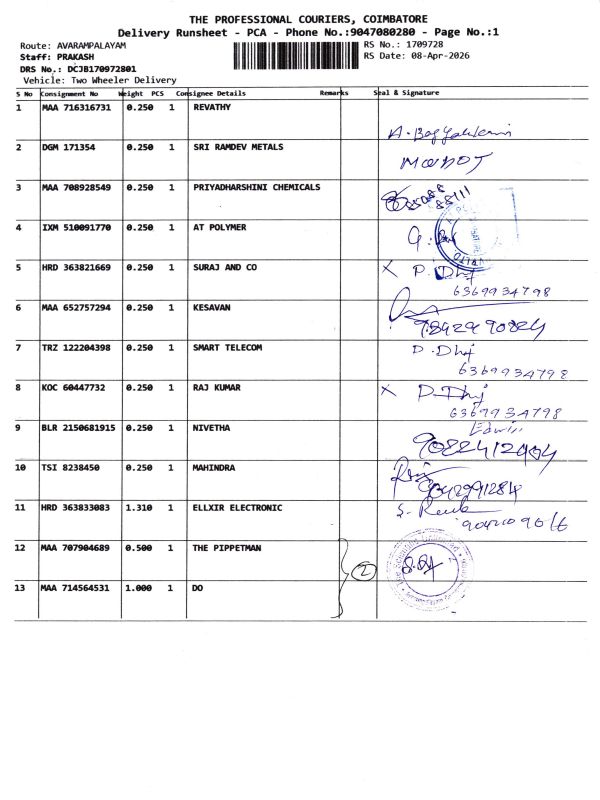 THE PROFESSIONAL COURIERS, COIMBATORE
Delivery Runsheet - PCA - Phone No.:9047080280 - Page No.:1
Route: AVARAMPALAYAM
RS No.: 1709728
Staff: PRAKASH
RS Date: 08-Apr-2026
DRS No.: DCJB170972801
Vehicle: Two Wheeler Delivery
S No Consignment No Weight PCS Consignee Details Remarks Seal & Signature
1 MAA 716316731 0.250 1 REVATHY
2 DGM 171354 0.250 1 SRI RAMDEV METALS
3 MAA 708928549 0.250 1 PRIYADHARSHINI CHEMICALS
4 IXM 510091770 0.250 1 AT POLYMER
5 HRD 363821669 0.250 1 SURAJ AND CO P. Dhj
6369934798
6 MAA 652757294 0.250 1 KESAVAN
7 TRZ 122204398 0.250 1 SMART TELECOM P. Dhj
6369934798
8 KOC 60447732 0.250 1 RAJ KUMAR P. Dhj
6369934798
9 BLR 2150681915 0.250 1 NIVETHA Edwin
10 TSI 8238450 0.250 1 MAHINDRA
11 HRD 363833083 1.310 1 ELLXIR ELECTRONIC
12 MAA 707904689 0.500 1 THE PIPPETMAN
2
13 MAA 714564531 1.000 1 DO